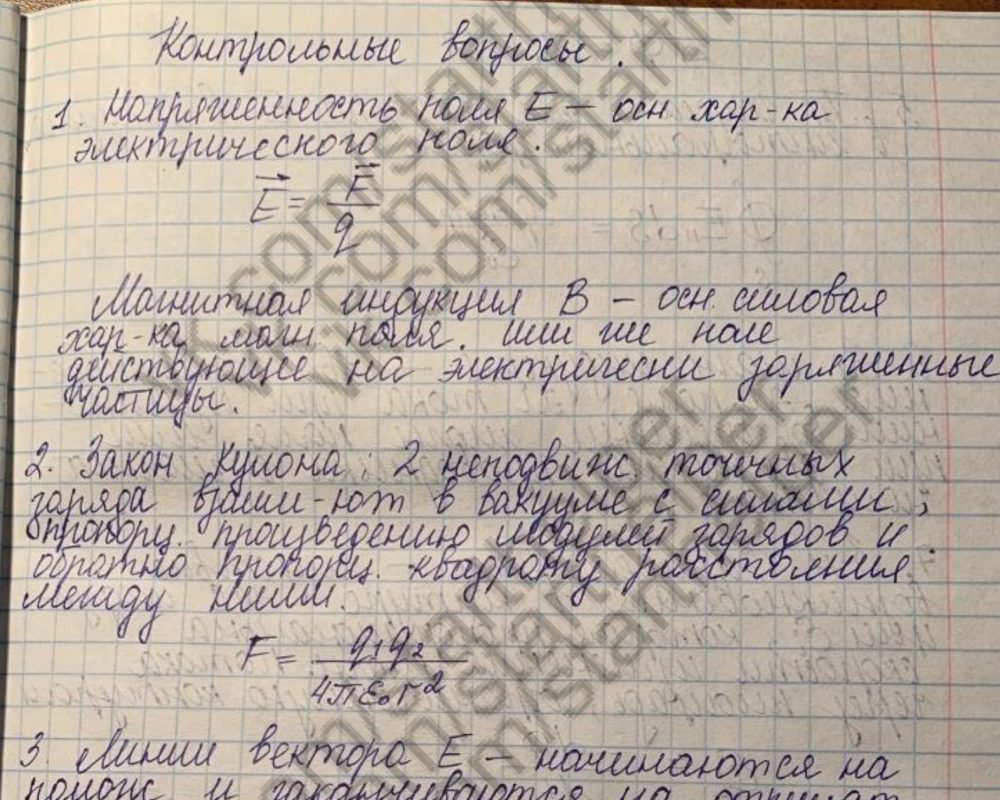 Контрольные вопросы.
1. Напряженность поля E – осн хар-ка
электрического поля.
E = F / q
Магнитная индукция B – осн. силовая
хар-ка магн. поля. или же поле
действующее на электрически заряженные
частицы.
2. Закон Кулона: 2 неподвиж. точечных
заряда взаим-ют в вакууме с силами,
пропорц. произведению модулей зарядов и
обратно пропорц. квадрату расстояния
между ними.
F = q1q2 / 4πε₀r²
3. Линии вектора E – начинаются на
полож и заканчиваются на отрицат